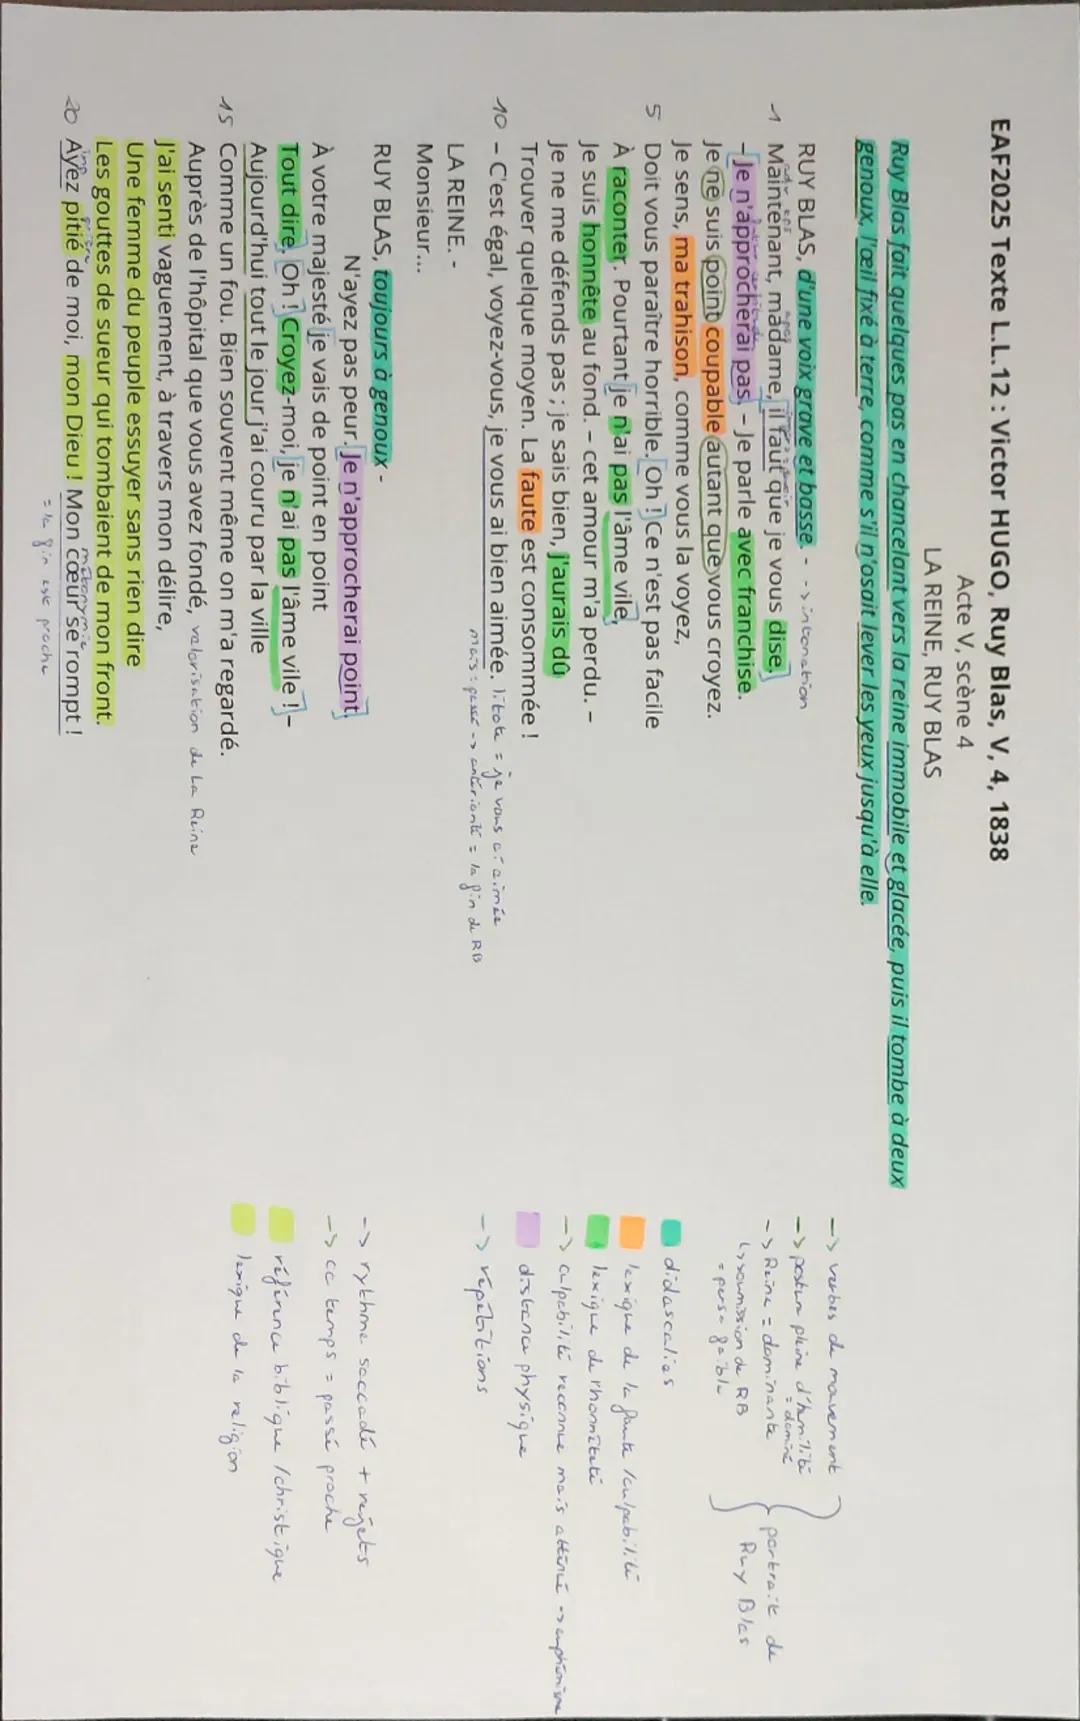 EAF2025 Texte L.L.12 : Victor HUGO, Ruy Blas, V, 4, 1838
Acte V, scène 4
LA REINE, RUY BLAS
Ruy Blas fait quelques pas en chancelant vers la reine immobile et glacée, puis il tombe à deux
genoux, l'œil fixé à terre, comme s'il n'osait lever les yeux jusqu'à elle.
RUY BLAS, d'une voix grave et basse. - -> intonation
1 Maintenant, madame, il faut que je vous dise.
- Je n'approcherai pas. - Je parle avec franchise.
Je ne suis point coupable autant que vous croyez.
Je sens, ma trahison, comme vous la voyez,
5 Doit vous paraître horrible. Oh ! Ce n'est pas facile
À raconter. Pourtant je n'ai pas l'âme vile,
Je suis honnête au fond. - cet amour m'a perdu. -
Je ne me défends pas ; je sais bien, j'aurais dû
Trouver quelque moyen. La faute est consommée !
10 - C'est égal, voyez-vous, je vous ai bien aimée. litote = je vous ai aimée
mais : passé -> antériorité = la fin de RB
LA REINE. -
Monsieur...
RUY BLAS, toujours à genoux -
N'ayez pas peur. Je n'approcherai point.
À votre majesté je vais de point en point
Tout dire. Oh ! Croyez-moi, je n'ai pas l'âme vile ! -
Aujourd'hui tout le jour j'ai couru par la ville
15 Comme un fou. Bien souvent même on m'a regardé.
Auprès de l'hôpital que vous avez fondé, valorisation de La Reine
J'ai senti vaguement, à travers mon délire,
Une femme du peuple essuyer sans rien dire
Les gouttes de sueur qui tombaient de mon front.
métonymie
20 Ayez pitié de moi, mon Dieu ! Mon cœur se rompt !
= la fin est proche
-> verbes de mouvement
-> posture pleine d'humilité
= dominé
-> Reine = dominante
↳ soumission de RB
= perso faible
portrait de
Ruy Blas
didascalies
lexique de la faute / culpabilité
lexique de l'honnêteté
-> culpabilité reconnue mais atténué -> euphémisme
distance physique
-> répétitions
-> rythme saccadé + rejets
-> cc temps = passé proche
référence biblique / christique
lexique de la religion